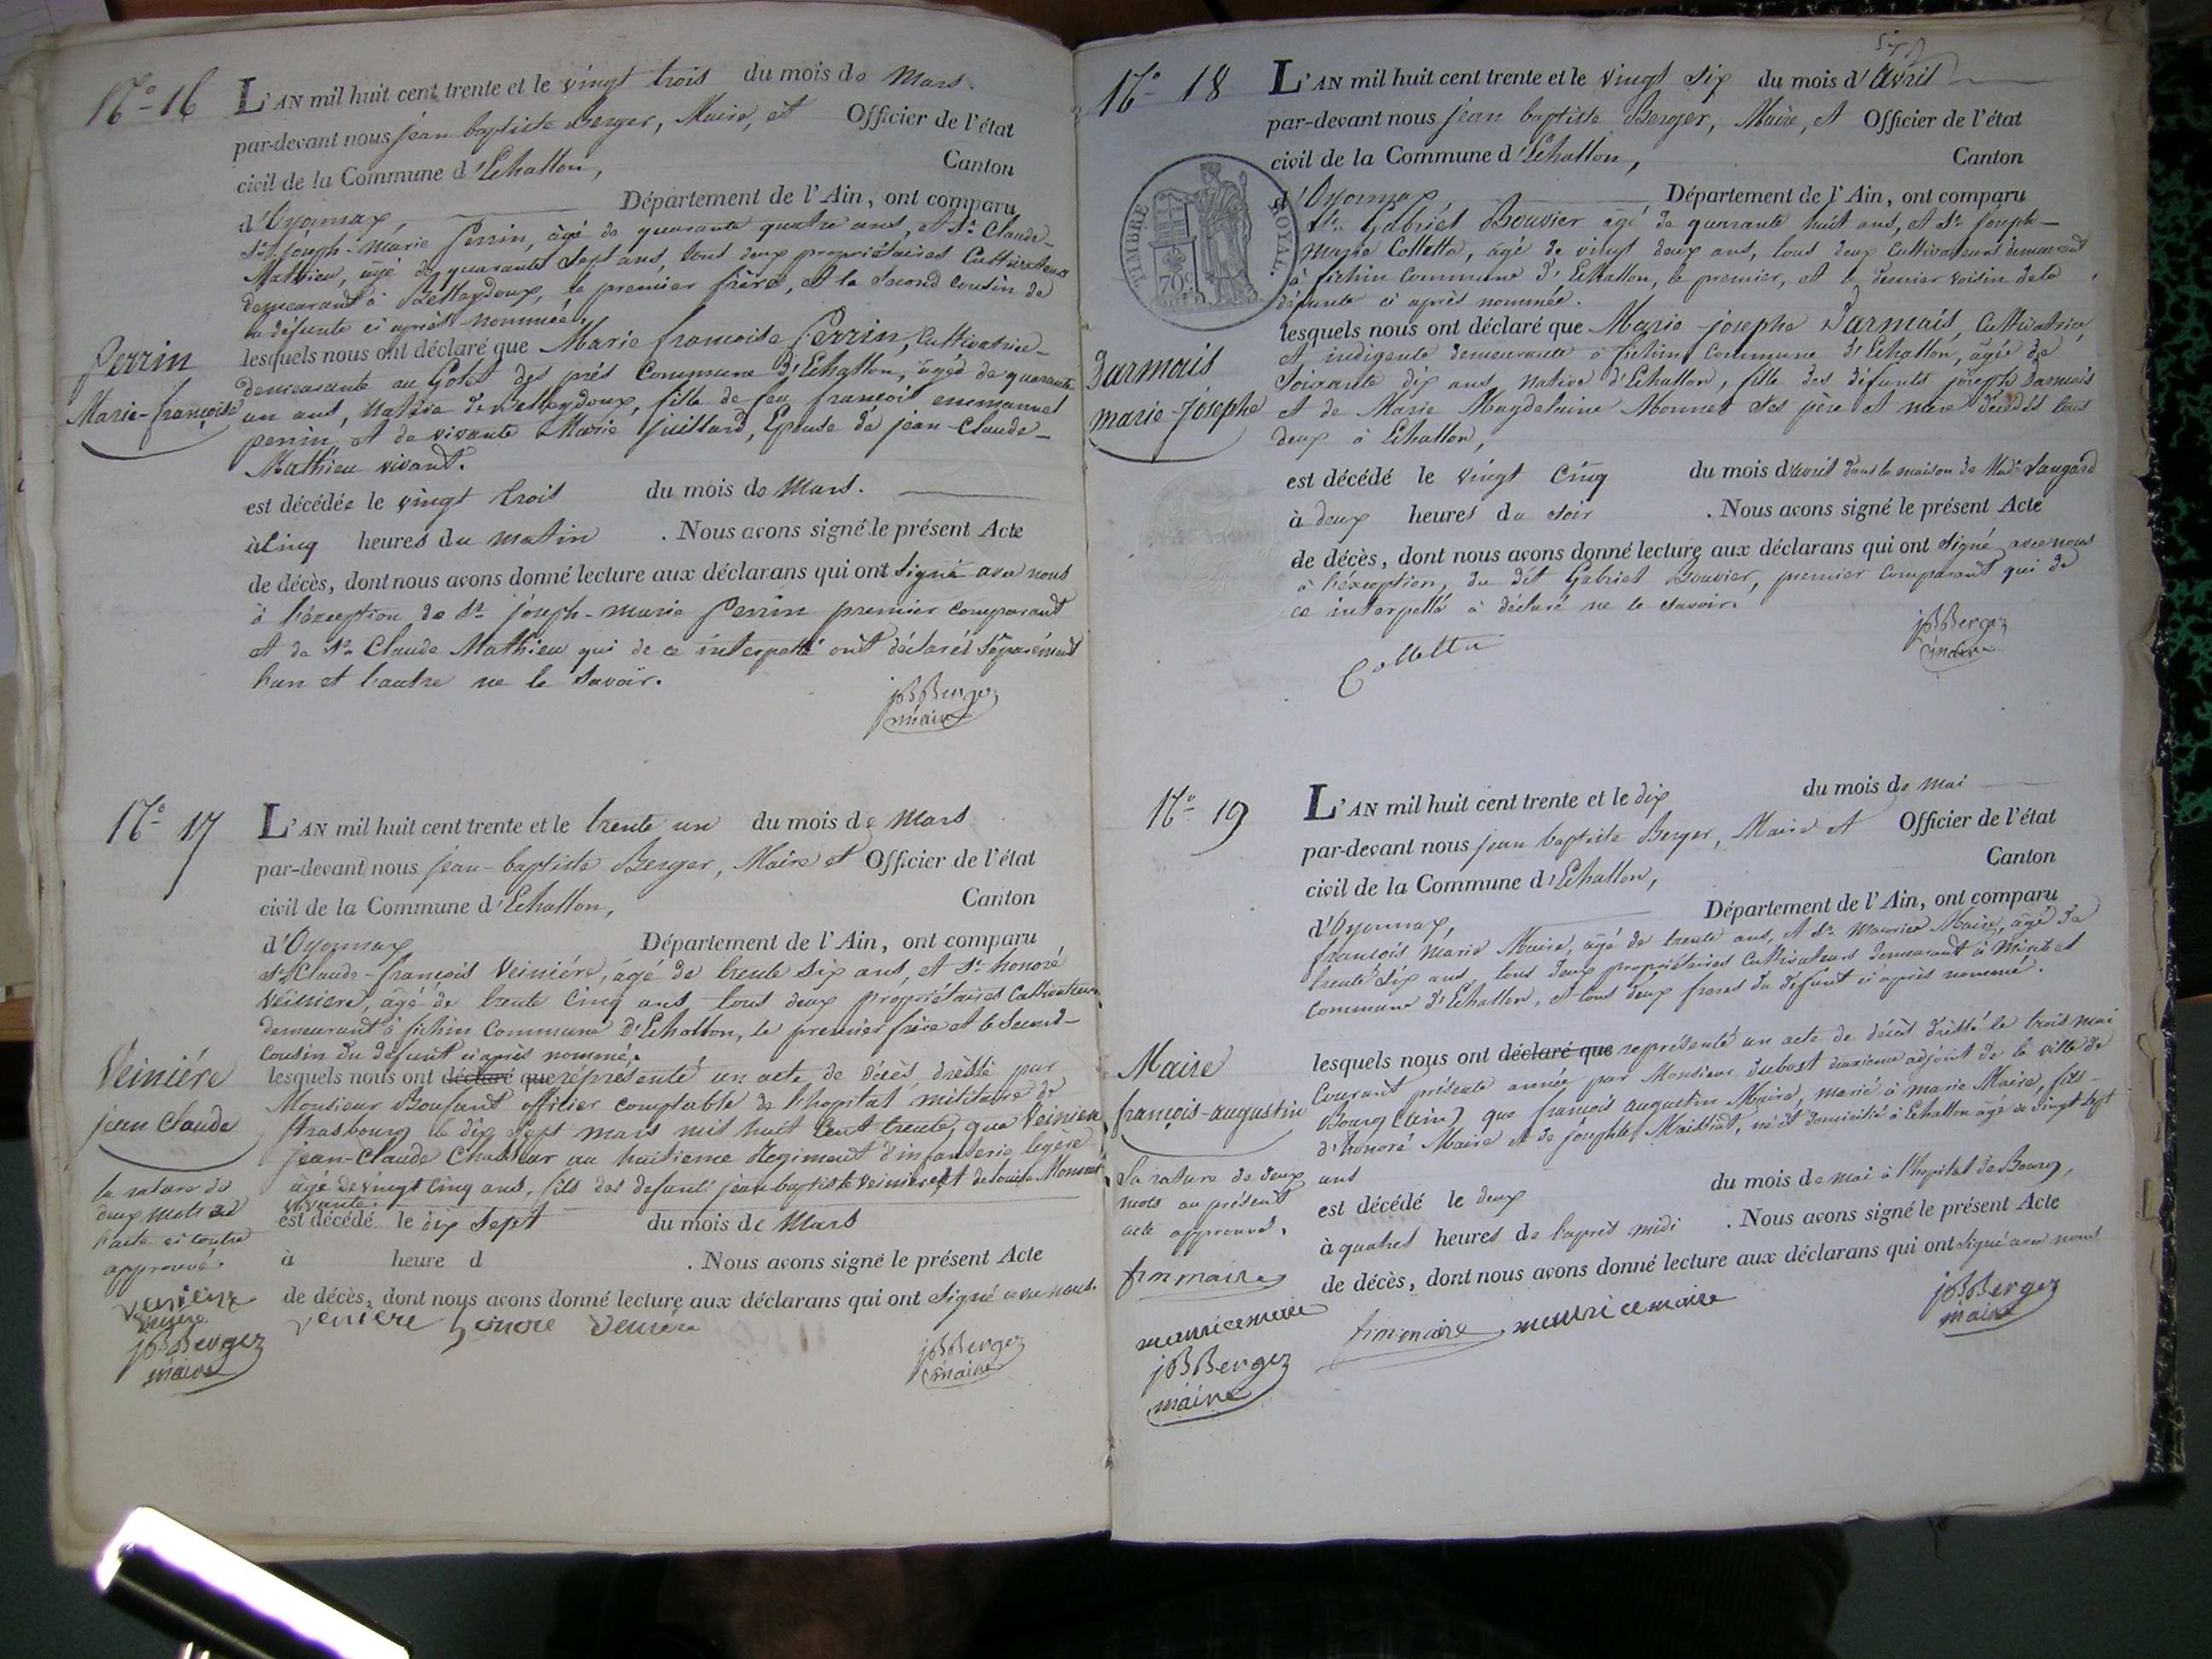 N.° 16
L'AN mil huit cent trente et le vingt trois du mois de Mars.
par-devant nous jean baptiste Berger, Maire, et Officier de l'état
civil de la Commune d'Echallon, Canton
d'Oyonnax, Département de l'Ain, ont comparu
Sr. joseph-marie Perrin, âgé de quarante quatre ans, et Sr. Claude-
Mathieu, âgé de quarante sept ans, tous deux propriétaires Cultivateurs
demeurant à Belleydoux, le premier frère, et le second cousin de
la défunte ci après nommée,
lesquels nous ont déclaré que Marie francoise Perrin, Cultivatrice
Perrin
Marie-françoise
demeurante au des prés Commune d'Echallon, âgée de quarante
un ans, Native de Belleydoux, fille de feu francois emmanuel
perrin et de vivante Marie Juillard, Epouse de jean-Claude-
Mathieu vivant.
est décédée le vingt trois du mois de Mars.
à cinq heures du matin. Nous avons signé le présent Acte
de décès, dont nous avons donné lecture aux déclarans qui ont signé avec nous
à l'éxception de Sr. joseph-marie Perrin premier comparant
et de Sr. Claude Mathieu qui de ce interpellé ont déclarés séparément
l'un et l'autre ne le savoir.
jBBerger
maire
N.° 17
L'AN mil huit cent trente et le trente un du mois de Mars
par-devant nous jean-baptiste Berger, Maire et Officier de l'état
civil de la Commune d'Echallon, Canton
d'Oyonnax Département de l'Ain, ont comparu
Sr. Claude-françois Veiniére, âgé de trente six ans, et Sr. honoré
Veiniere, âgé de trente cinq ans tous deux propriétaires Cultivateurs
demeurant à fichin Commune d'Echallon, le premier frère et le second
Cousin du défunt ci après nommé.
lesquels nous ont déclaré que réprésenté un acte de décès dréssé par
Veiniére
jean Claude
Monsieur Boufant officier comptable de l'hopital militaire de
Strasbourg le dix sept mars mil huit cent trente, que Veiniere
jean-Claude Chasseur au huitieme Regiment d'infanterie legere
âgé de vingt cinq ans, fils des defunt jean baptiste veiniere et de louise Monnet
vivante.
est décédé le dix sept du mois de Mars
à heure d. Nous avons signé le présent Acte
de décès, dont nous avons donné lecture aux déclarans qui ont signé avec nous.
la rature de
deux mots de
l'acte ci contre
approuvé.
veniere
jBBerger
maire
veniere honore veniere
jBBerger
maire
N.° 18
L'AN mil huit cent trente et le vingt six du mois d'avril
par-devant nous jean baptiste Berger, Maire, et Officier de l'état
civil de la Commune d'Echallon, Canton
d'Oyonnax, Département de l'Ain, ont comparu
TIMBRE ROYAL.
70c
Sr. Gabriel Bouvier âgé de quarante huit ans, et Sr. joseph-
marie Colletta, âgé de vingt deux ans, tous deux Cultivateurs demeurant
à fichin Commune d'Echallon, le premier, et le dernier voisin de la
défunte ci après nommée.
lesquels nous ont déclaré que Marie-josephe Darmais, Cultivatrice
Darmais
marie-Josephe
et indigente demeurante à fichin Commune d'Echallon, âgée de
soixante dix ans native d'Echallon, fille des défunts joseph Darmais
et de Marie Magdelaine Monnet ses père et mère décédés tous
deux à Echallon,
est décédé le vingt Cinq du mois d'avril dans la maison de
à deux heures du soir. Nous avons signé le présent Acte
de décès, dont nous avons donné lecture aux déclarans qui ont signé avec nous
à l'éxception, du dit Gabriel Bouvier, premier comparant qui de
ce interpellé à déclaré ne le savoir.
Colletta
jBBerger
maire
N.° 19
L'AN mil huit cent trente et le dix du mois de mai
par-devant nous jean baptiste Berger, Maire et Officier de l'état
civil de la Commune d'Echallon, Canton
d'Oyonnax, Département de l'Ain, ont comparu
françois Marie Maire, âgé de trente ans, et Sr. Maurice Maire, âgé de
trente six ans, tous deux propriétaires Cultivateurs demeurant à
commune d'Echallon, et tous deux freres du défunt ci après nommé.
lesquels nous ont déclaré que représenté un acte de décès dréssé le trois mai
Maire
françois-augustin
Courant présente année par Monsieur dubost deuxieme adjoint de la ville de
Bourg (ain) que francois augustin Maire, marié à marie Maire, fils
d'honoré Maire et de josephte Maillat, né et domicilié à Echallon âgé de vingt sept
ans
est décédé le deux du mois de mai à l'hopital de Bourg,
à quatres heures de l'après midi. Nous avons signé le présent Acte
de décès, dont nous avons donné lecture aux déclarans qui ont signé avec nous
La rature de deux
mots au présent
acte approuvés.
fmmaire
mauricemaire
jBBerger
maire
fmmaire mauricemaire
jBBerger
maire